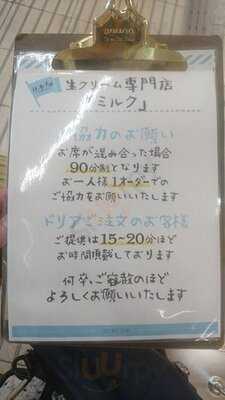 生クリーム専門店
「ミルク」
ご協力のお願い
お席が混み合った場合
90分制となります
お一人様1オーダーでの
ご協力をお願いいたします
ドリアご注文のお客様
ご提供は15~20分ほど
お時間頂戴しております
何卒、ご容赦のほど
よろしくお願いいたします